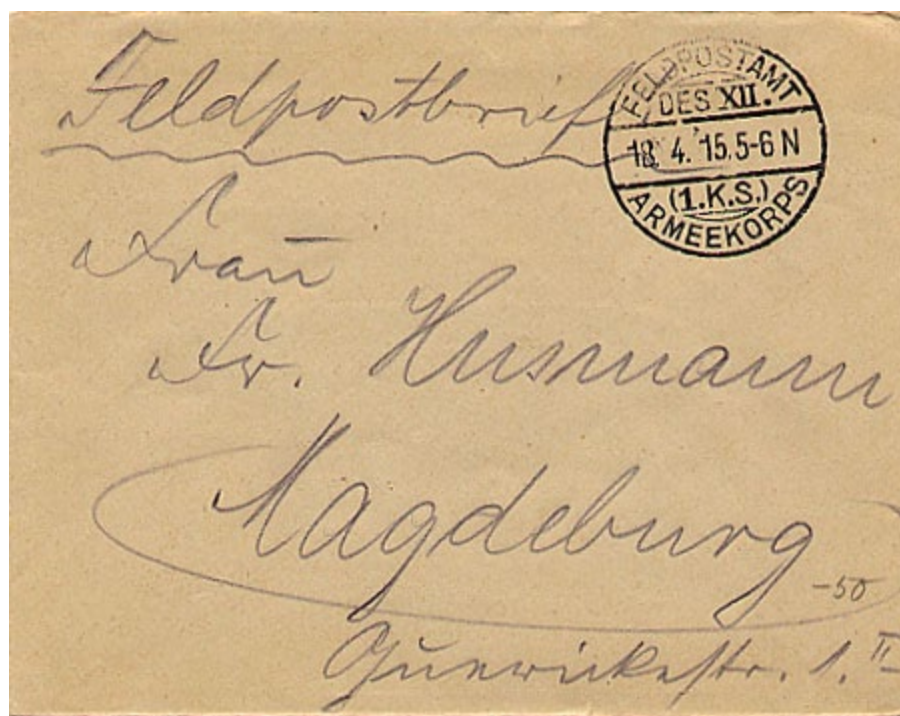 Feldpostbrief
FELDPOSTAMT
DES XII.
18. 4. 15. 5-6 N
(1.K.S.)
ARMEEKORPS
Frau
Fr. Husmann
Magdeburg
-50
1. II